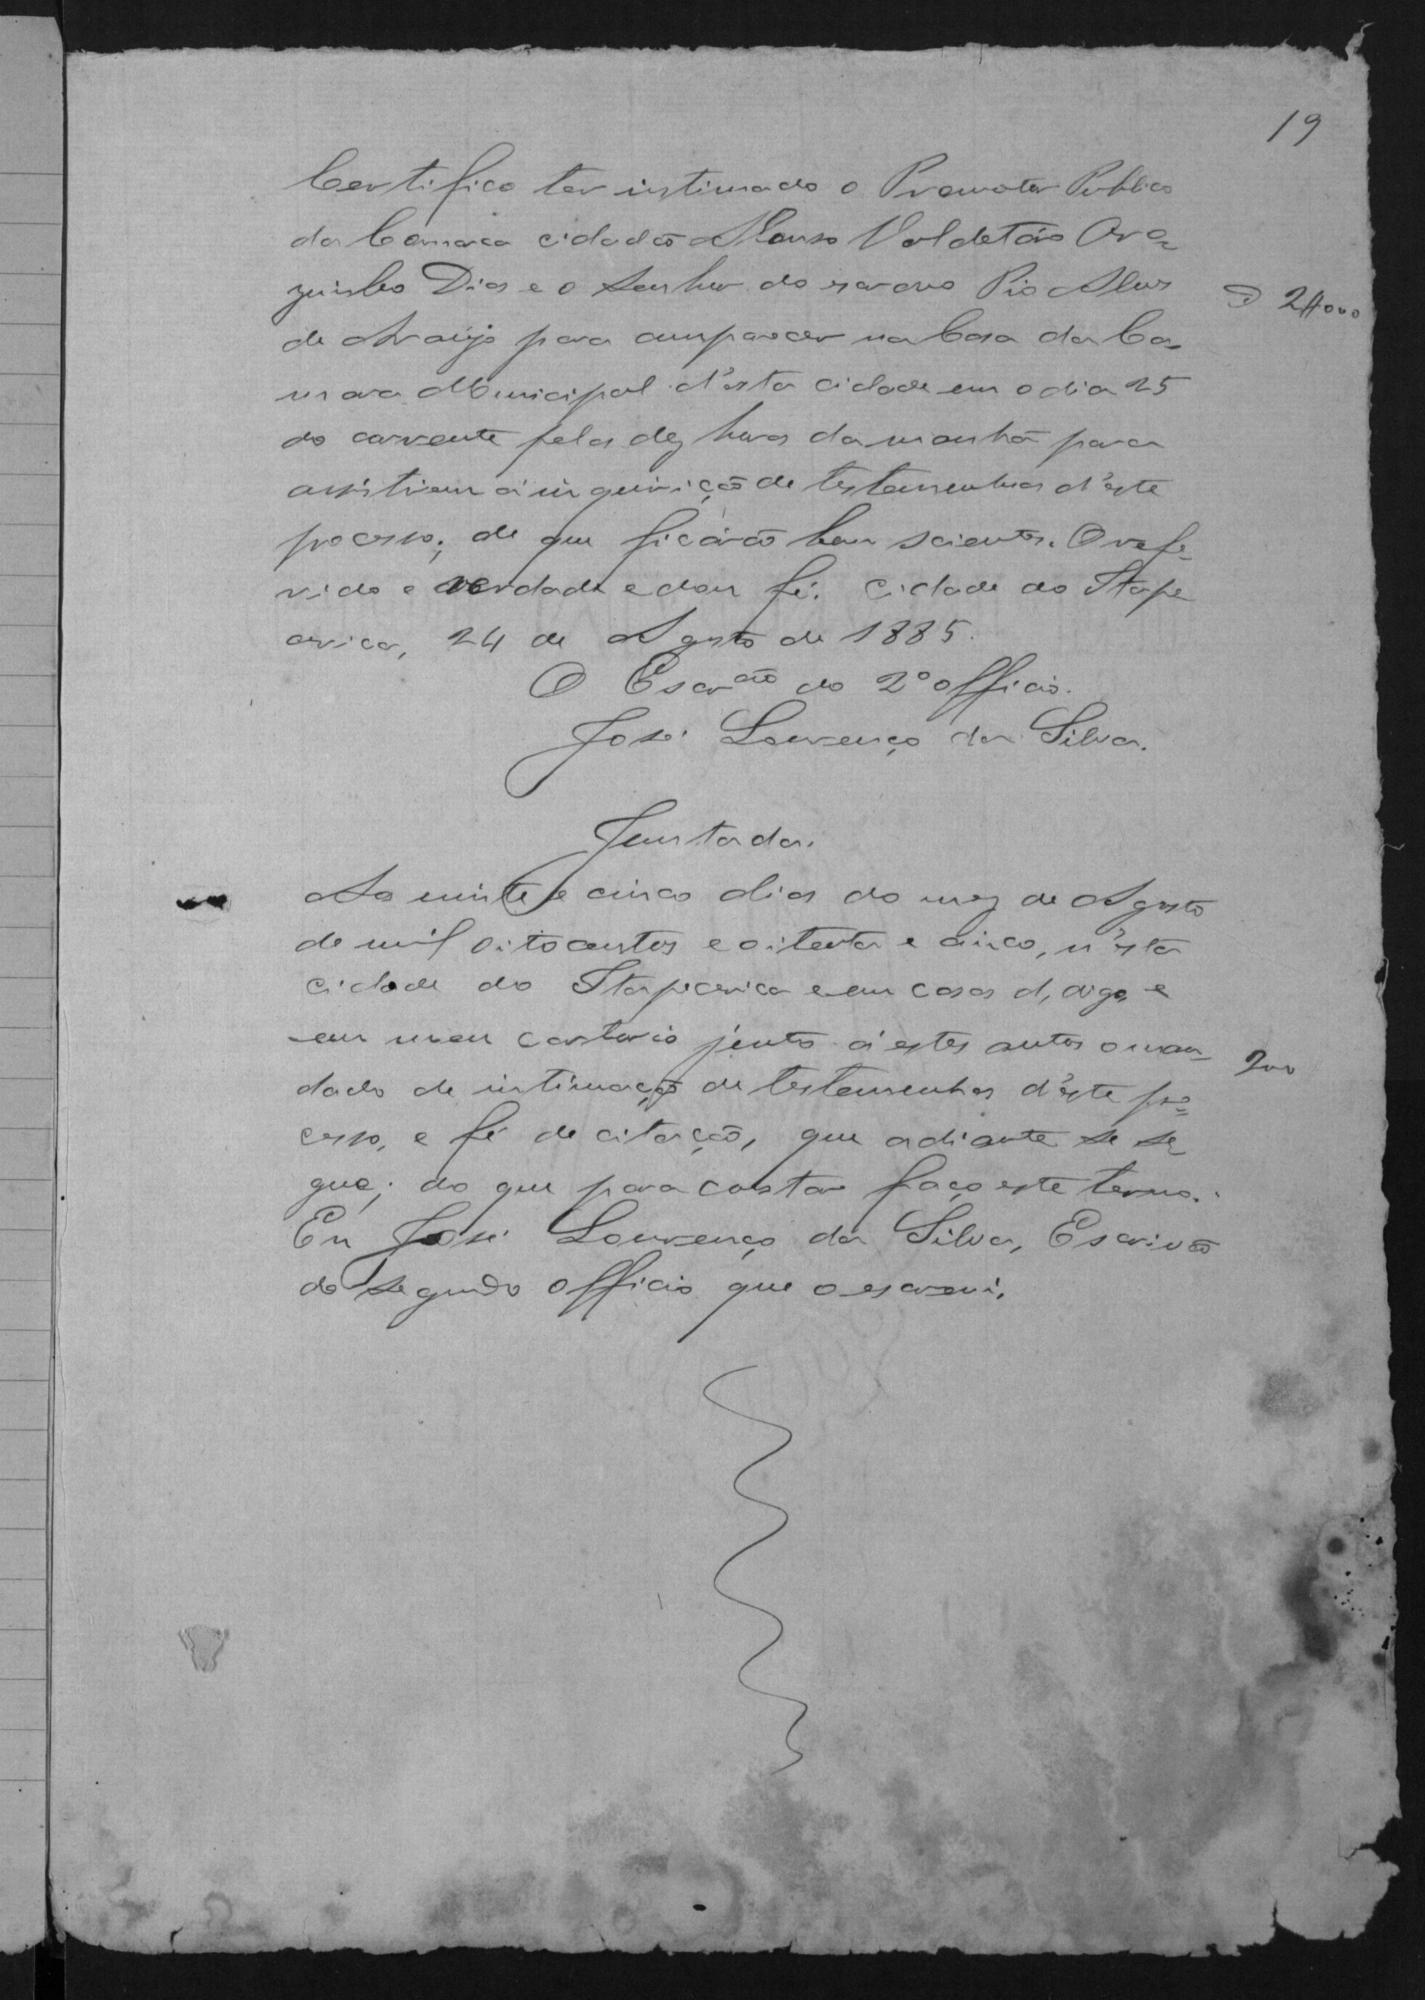 19
Certifico ter intimado o Promotor Publico
da Comarca cidadão Afonso Valdetáo Ora-
zimbo Dias e o senhor do escravo Pio Alves
de Araujo para comparecer na Casa da Ca-
mara Municipal d'esta cidade em o dia 25
do corrente pelas dez horas da manhã para
assistirem á inquirição de testemunhas d'este
processo; de que ficárão bem scientes. O refe-
rido é verdade e dou fé. Cidade do Itape
cerica, 24 de Agosto de 1885.
2#000
O Escrão do 2º officio.
José Lourenço da Silva.
Juntada.
Ao vinte e cinco dias do mez de Agosto
de mil oitocentos e oitenta e cinco, n'esta
cidade do Itapecerica e em casas d, digo e
em meu cartorio junto á estes autos o man-
dado de intimação de testemunhas d'este pro-
cesso, e fé de citação, que adiante se se
gue; do que para constar faço este termo.
200
Eu José Lourenço da Silva, Escrivão
do segundo officio que o escrevi.